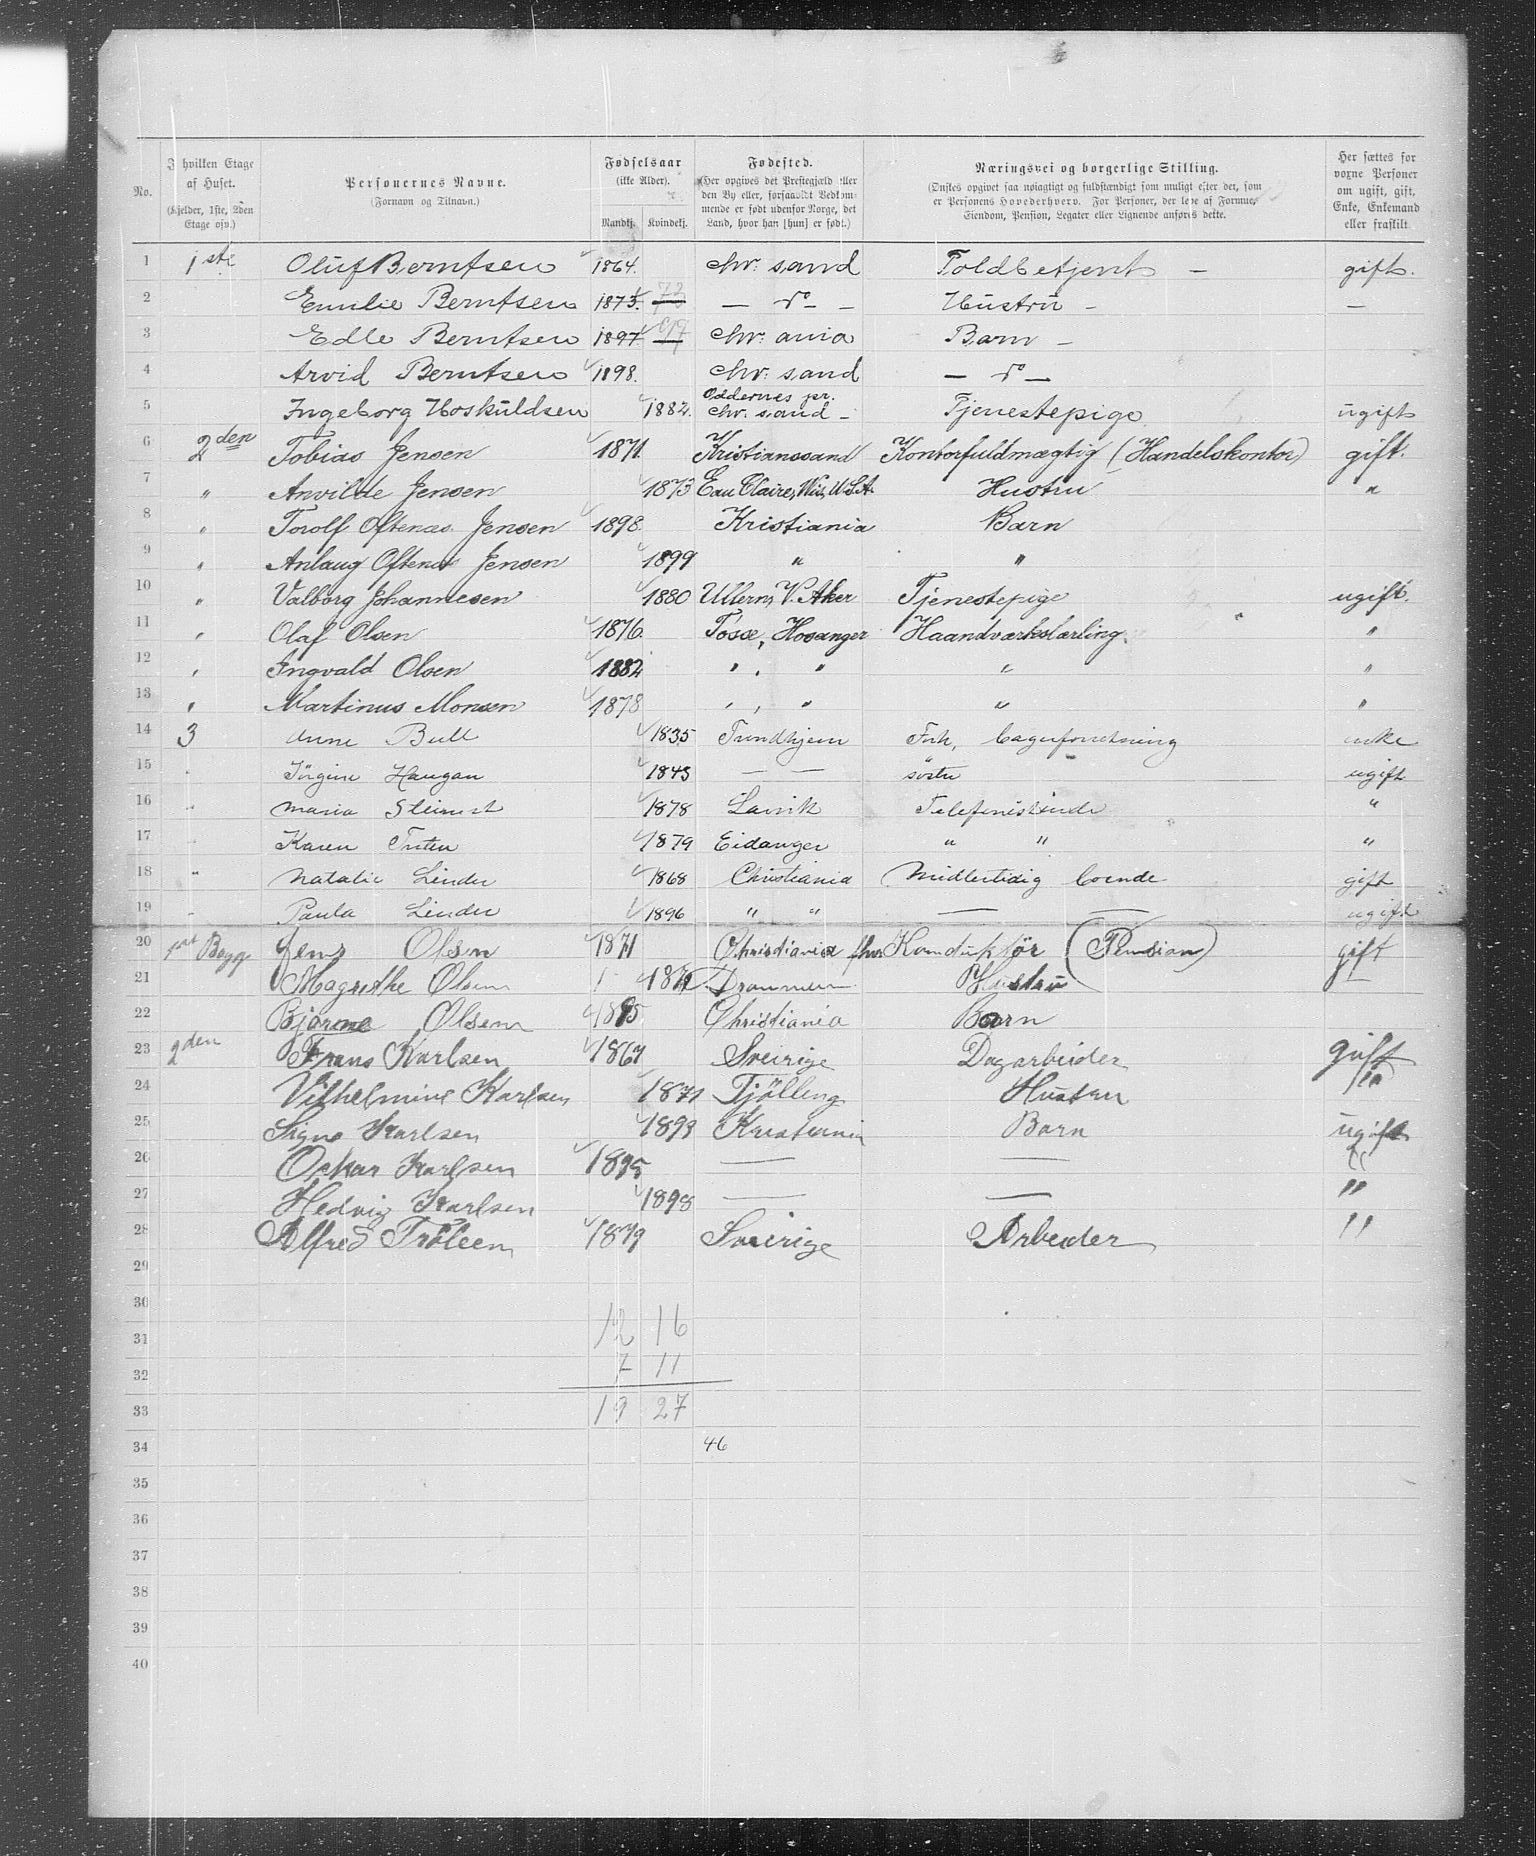 No. I hvilken Etage af Huset. (Kjelder, 1ste, 2den Etage osv.) Personernes Navne. (Fornavn og Tilnavn.) Fødselsaar (ikke Alder). Mandkj. Kvindekj. Fødested. (Her opgives det Prestegjæld eller den By eller, forsaavidt Vedkommende er født udenfor Norge, det Land, hvor han [hun] er født.) Næringsvei og borgerlige Stilling. (Ønskes opgivet saa nøiagtigt og fuldstændigt som muligt efter der, som er Personens Hovederhverv. For Personer, der leve af Formue, Eiendom, Pension, Legater eller Lignende anføres dette.) Her sættes for voxne Personer om ugift, gift, Enke, Enkemand eller fraskilt
1 1ste Oluf Berntsen 1864. Chr: sand Toldbetjent – gift.
2 Emilie Berntsen 1873. 73 – do – – Hustru – –
3 Edle Berntsen 1897 97 Chr: ania Barn –
4 Arvid Berntsen 1898. Chr: sand – do –
5 Ingeborg Hoskuldsen 1882. Oddernes pr. Chr. sand – Tjenestepige ugift
6 2den Tobias Jensen 1871. Kristianssand Kontorfuldmægtig (Handelskontor) gift.
7 " Anvilde Jensen 1873 Eau Claire, Wis, U.S.A. Hustru "
8 " Torolf Oftenæs Jensen 1898. Kristiania Barn
9 " Anlaug Oftenæs Jensen 1899 " "
10 " Valborg Johannesen 1880 Ullern, V. Aker Tjenestepige ugift.
11 " Olaf Olsen 1876. Fosse, Hosanger Haandværkslærling. "
12 " Ingvald Olsen 1882 " , " " "
13 " Martinus Monsen 1878 " , " " "
14 3 Anne Bull 1835 Trondhjem Forh. enke
15 " Jørgine Haugan 1843 — — søster ugift
16 " Maria 1878 Larvik Telefonistinde "
17 " Karen 1879 Eidanger " " "
18 " Natalie Linder 1868 Christiania Midlertidig boende gift
19 " Paula Linder 1896 " " — — ugift
20 1ste Bagg Jens Olsen 1871 Christiania Konduktør (Pension) gift
21 Magrethe Olsen Drammen Hustru –
22 Bjarne Olsen 1895 Christiania Barn
23 2den Frans Karlsen 1867 Sveirige Dagarbeider gift
24 Vilhelmine Karlsen 1871 Tjølling Hustru
25 Signe Karlsen 1893 Kristiania Barn ugift
26 Oskar Karlsen 1895 — — "
27 Hedvig Karlsen 1898 — — "
28 Alfred 1879 Sveirige Arbeider "
29
30
12 16
31
7 11
32
19 27
33
34 46
35
36
37
38
39
40